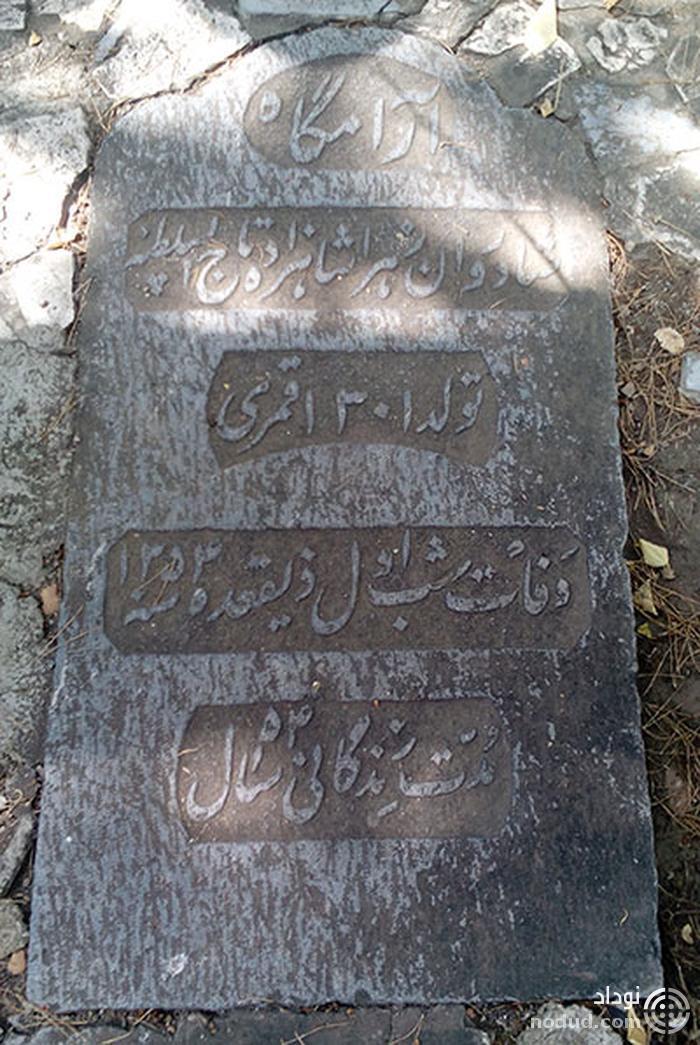 آرامگاه
شادروان زهرا شاهزاده تاج السلطنه
تولد ۱۳۰۱ قمری
وفات شب اول ذیقعده سنه ۱۳۵۴
مدت زندگانی ۵۳ سال
نوداد
nodud.com